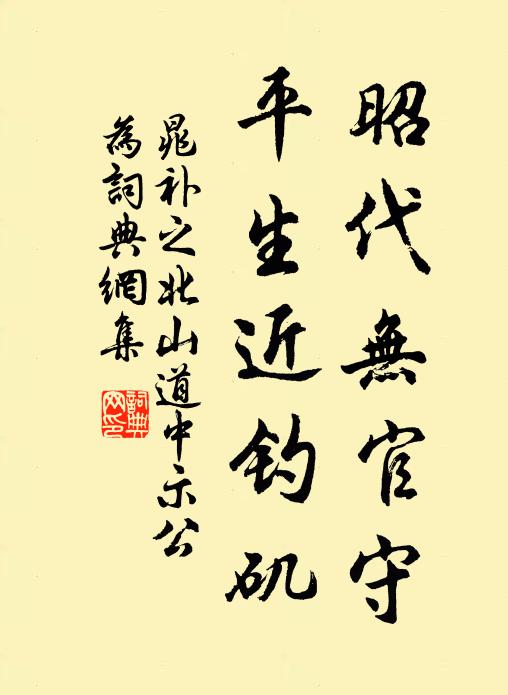 昭代無官守
平生近钓矶
晁补之北山道中示公
為詞典網集
詞典
网印